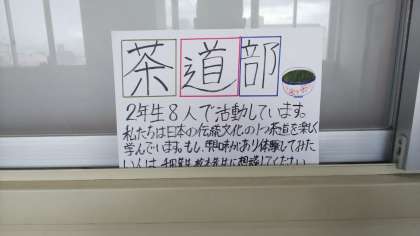 茶道部
2年生8人で活動しています。
私たちは日本の伝統文化の1つ茶道を楽しく
学んでいます。もし、興味があり体験してみた
い人は、先生に相談してください